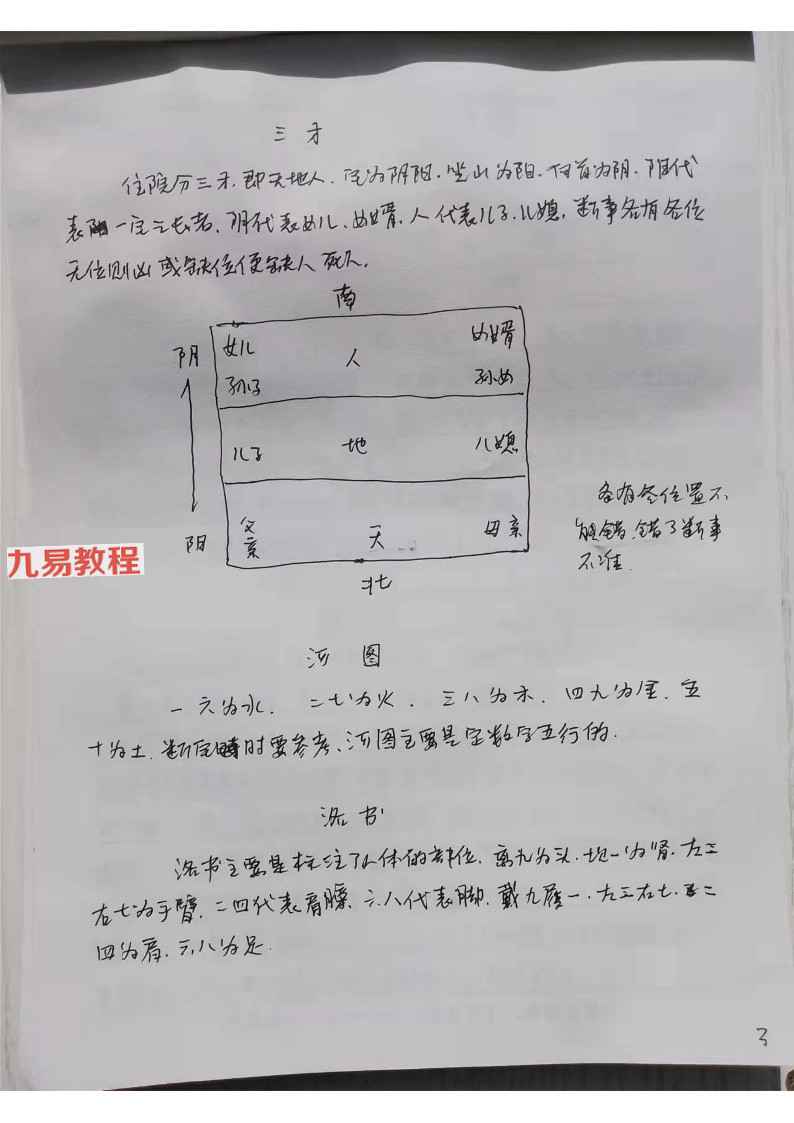 三才
住院分三才.即天地人.宅为阴阳.坐山为阳.向首为阴.阳代
表一宅之长者.阴代表女儿、女婿.人代表儿子.儿媳.断事各有各位
无位则凶或缺位便缺人死人.
南
阴
女儿
人
女婿
孙子
孙女
儿子
地
儿媳
阳
父亲
天
母亲
北
各有各位置不
能错.错了断事
不准.
九易教程
河图
一六为水. 二七为火. 三八为木. 四九为金. 五
十为土.断宅时要参考、河图主要是定数字五行的.
洛书
洛书主要是标注了人体的部位.离九为头.坎一为肾.左三
右七为手臂.二四代表肩膀.六.八代表脚.戴九履一.左三右七.二
四为肩.六八为足.
3